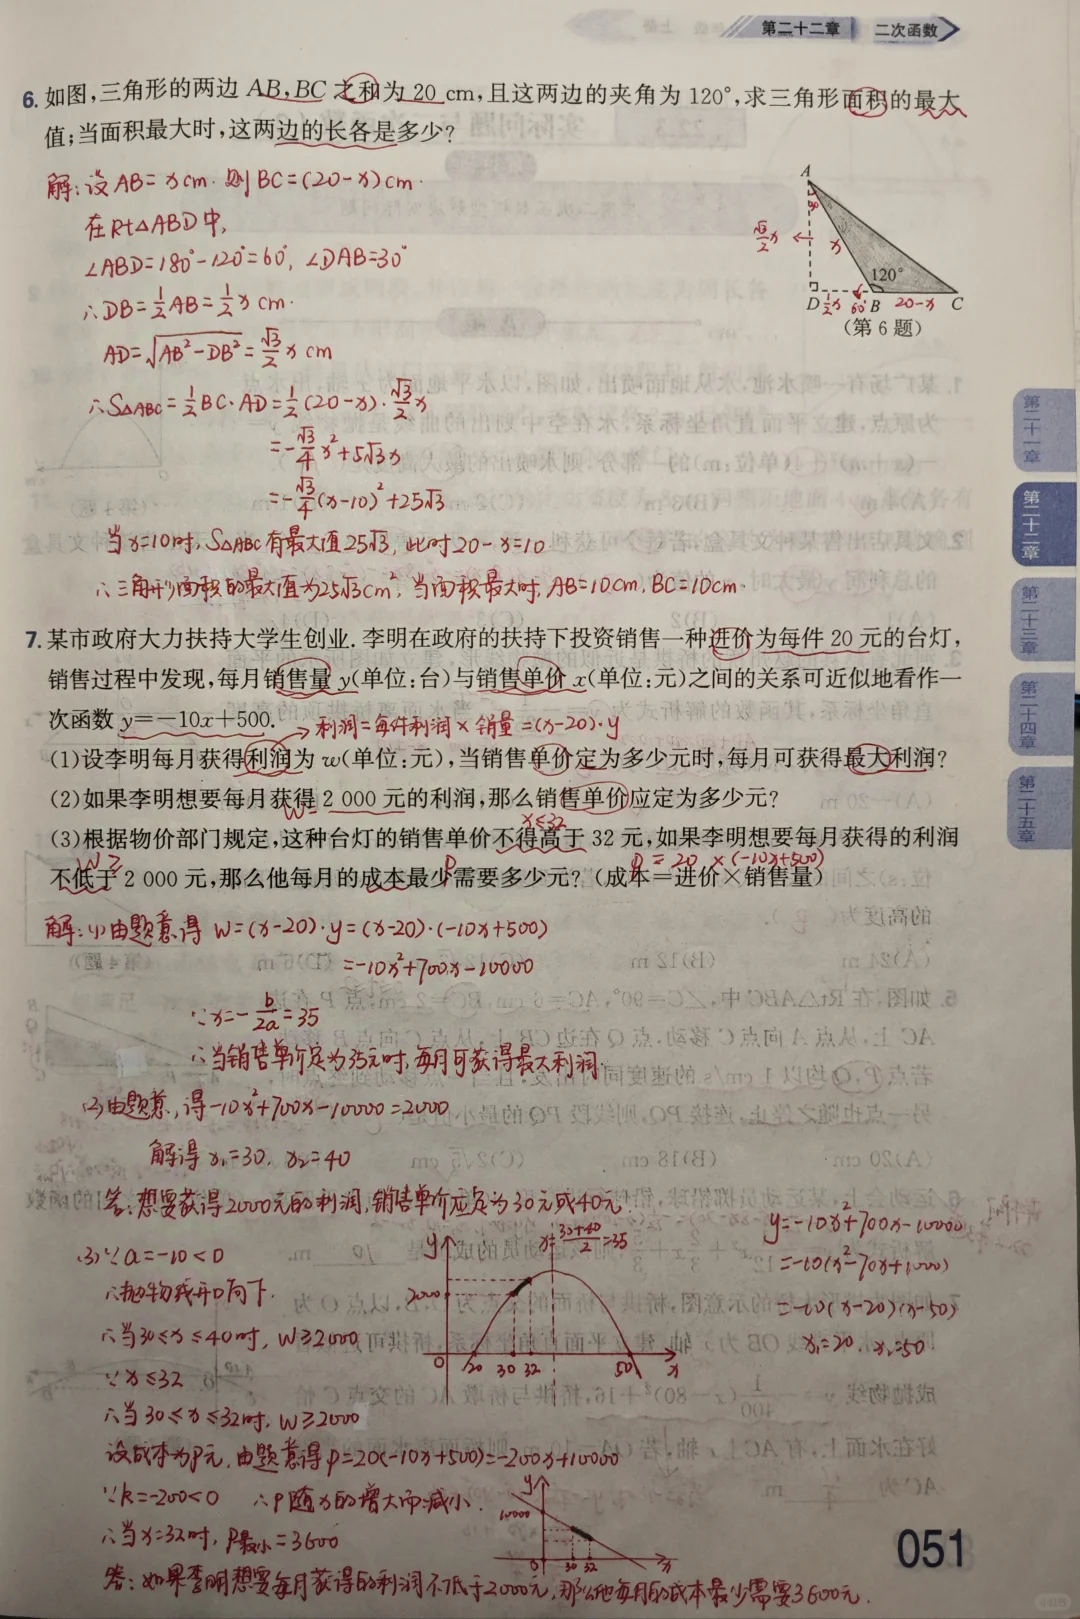 第二十二章 二次函数
6. 如图,三角形的两边 AB,BC 之和为 20 cm,且这两边的夹角为 120°,求三角形面积的最大
值;当面积最大时,这两边的长各是多少?
解:设AB=xcm. 则BC=(20-x)cm.
在Rt△ABD中,
∠ABD=180°-120°=60°, ∠DAB=30°
∴DB=1/2AB=1/2x cm.
AD=√(AB²-DB²)=√3/2x cm
∴S△ABC=1/2BC·AD=1/2(20-x)·√3/2x
=-√3/4x²+5√3x
=-√3/4(x-10)²+25√3
当x=10时,S△ABC有最大值25√3, 此时20-x=10
∴三角形面积的最大值为25√3cm², 当面积最大时, AB=10cm, BC=10cm.
A
30°
√3/2x
x
120°
D 1/2x 60° B 20-x C
(第6题)
7. 某市政府大力扶持大学生创业. 李明在政府的扶持下投资销售一种进价为每件 20 元的台灯,
销售过程中发现,每月销售量 y(单位:台)与销售单价 x(单位:元)之间的关系可近似地看作一
次函数 y=-10x+500.
利润=每件利润×销量=(x-20)·y
(1)设李明每月获得利润为 w(单位:元),当销售单价定为多少元时,每月可获得最大利润?
(2)如果李明想要每月获得 2 000 元的利润,那么销售单价应定为多少元?
W=
x≤32
(3)根据物价部门规定,这种台灯的销售单价不得高于 32 元,如果李明想要每月获得的利润
W≥
P
P=20×(-10x+500)
不低于 2 000 元,那么他每月的成本最少需要多少元? (成本=进价×销售量)
解:(1)由题意,得 W=(x-20)·y=(x-20)·(-10x+500)
=-10x²+700x-10000
∵x=-b/2a=35
∴当销售单价定为35元时,每月可获得最大利润.
(2)由题意,得-10x²+700x-10000=2000
解得 x₁=30, x₂=40
答:想要获得2000元的利润,销售单价应定为30元或40元.
(3)∵a=-10<0
∴抛物线开口向下.
∴当30≤x≤40时, W≥2000
∵x≤32
∴当30≤x≤32时, W≥2000
设成本为P元,由题意得P=20(-10x+500)=-200x+10000
∵k=-200<0 ∴P随x的增大而减小.
∴当x=32时, P最小=3600
答:如果李明想要每月获得的利润不低于2000元,那么他每月的成本最少需要3600元.
y
x=(30+40)/2=35
2000
0 20 30 32 50 x
y=-10x²+700x-10000
=-10(x²-70x+1000)
=-10(x-20)(x-50)
x₁=20, x₂=50
y
10000
0 30 32 x
第二十一章
第二十二章
第二十三章
第二十四章
第二十五章
051